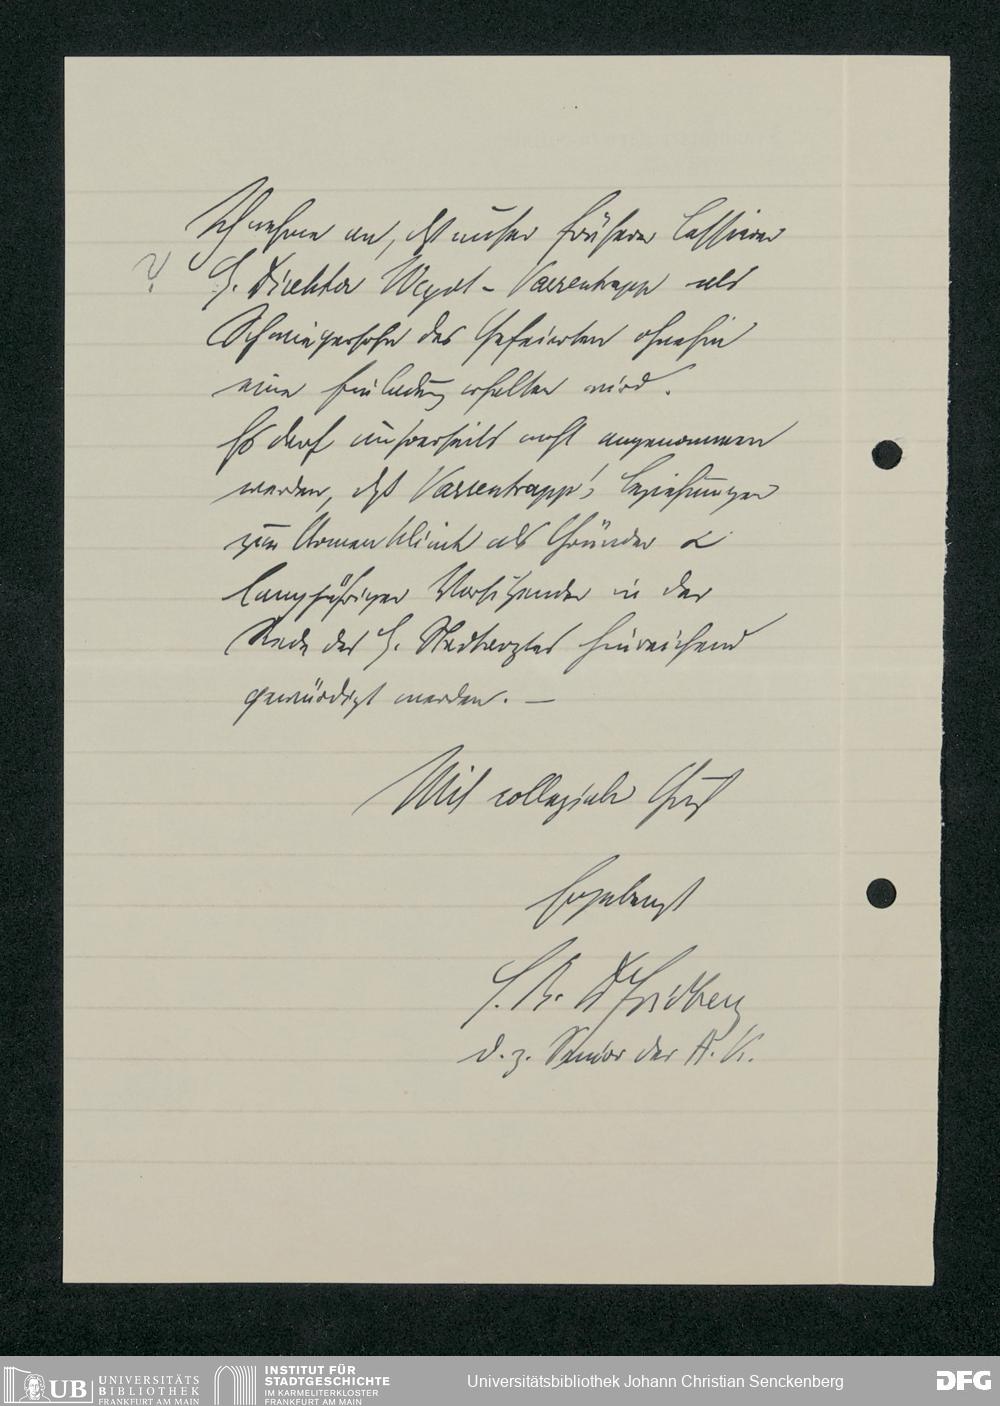 Ich nehme an, daß unser früherer Cassierer
?
H. Direktor Weydt-Varrentrapp als
Schwiegersohn des Gefeierten ohnehin
eine Einladung erhalten wird.
Es darf unsrerseits wohl angenommen
werden, daß Varrentrapp's Beziehungen
zur Armenklinik als Gründer &
langjähriger Vorsitzender in der
Rede des H. Stadtarztes hinreichend
gewürdigt werden. —
Mit collegialem Gruß
Ergebenst
S. R. Dr
d. z. Senior der A. K.
UB UNIVERSITÄTS
BIBLIOTHEK
FRANKFURT AM MAIN
INSTITUT FÜR
STADTGESCHICHTE
IM KARMELITERKLOSTER
FRANKFURT AM MAIN
Universitätsbibliothek Johann Christian Senckenberg
DFG